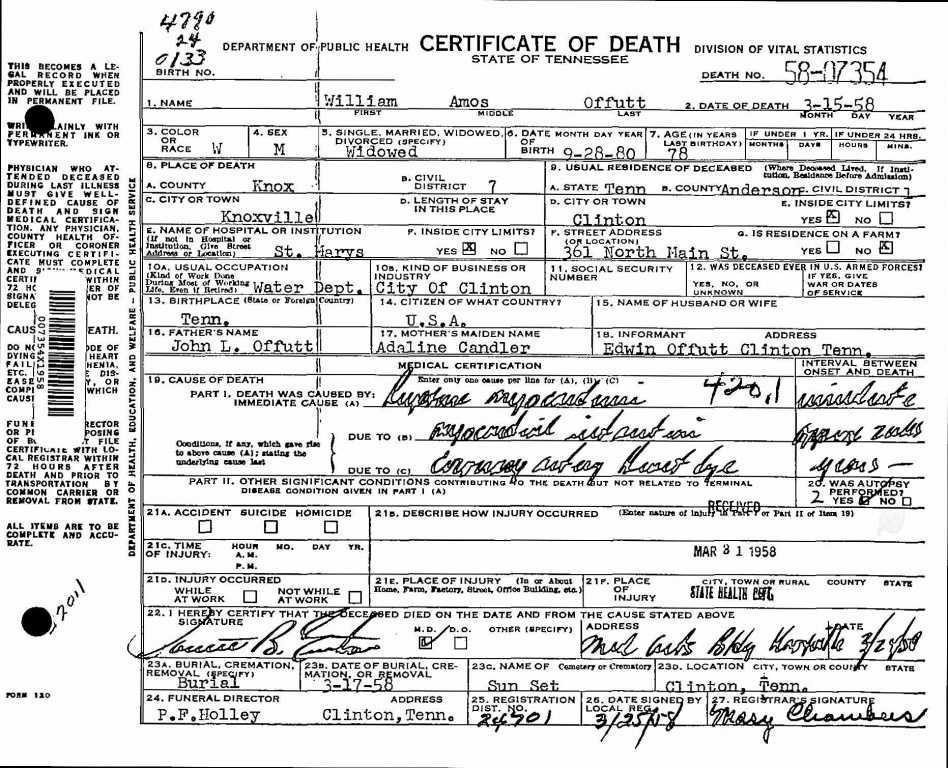 4790
24
0133
BIRTH NO.
DEPARTMENT OF PUBLIC HEALTH CERTIFICATE OF DEATH DIVISION OF VITAL STATISTICS
STATE OF TENNESSEE
DEATH NO. 58-07354
THIS BECOMES A LEGAL RECORD WHEN PROPERLY EXECUTED AND WILL BE PLACED IN PERMANENT FILE.
PLAINLY WITH PERMANENT INK OR TYPEWRITER.
PHYSICIAN WHO ATTENDED DECEASED DURING LAST ILLNESS MUST GIVE WELL-DEFINED CAUSE OF DEATH AND SIGN MEDICAL CERTIFICATION. ANY PHYSICIAN, COUNTY HEALTH OFFICER OR CORONER EXECUTING CERTIFICATE MUST COMPLETE
ALL ITEMS ARE TO BE COMPLETE AND ACCURATE.
FORM 120
DEPARTMENT OF HEALTH, EDUCATION, AND WELFARE - PUBLIC HEALTH SERVICE
1. NAME William Amos Offutt 2. DATE OF DEATH 3-15-58
FIRST MIDDLE LAST MONTH DAY YEAR
3. COLOR OR RACE W 4. SEX M 5. SINGLE, MARRIED, WIDOWED, DIVORCED (SPECIFY) Widowed 6. DATE OF BIRTH MONTH DAY YEAR 9-28-80 7. AGE (IN YEARS LAST BIRTHDAY) 78 IF UNDER 1 YR. MONTHS DAYS IF UNDER 24 HRS. HOURS MINS.
8. PLACE OF DEATH
A. COUNTY Knox B. CIVIL DISTRICT 7
9. USUAL RESIDENCE OF DECEASED (Where Deceased Lived, If Institution, Residence Before Admission)
A. STATE Tenn B. COUNTY Anderson C. CIVIL DISTRICT 1
C. CITY OR TOWN Knoxville D. LENGTH OF STAY IN THIS PLACE
D. CITY OR TOWN Clinton E. INSIDE CITY LIMITS? YES X NO
E. NAME OF HOSPITAL OR INSTITUTION (If not in Hospital or Institution, Give Street Address or Location) St. Marys F. INSIDE CITY LIMITS? YES X NO
F. STREET ADDRESS (OR LOCATION) 361 North Main St. G. IS RESIDENCE ON A FARM? YES NO X
10A. USUAL OCCUPATION (Kind of Work Done During Most of Working Life, Even if Retired) Water Dept. 10B. KIND OF BUSINESS OR INDUSTRY City Of Clinton
11. SOCIAL SECURITY NUMBER 12. WAS DECEASED EVER IN U.S. ARMED FORCES? YES, NO, OR UNKNOWN IF YES, GIVE WAR OR DATES OF SERVICE
13. BIRTHPLACE (State or Foreign Country) Tenn. 14. CITIZEN OF WHAT COUNTRY? U.S.A. 15. NAME OF HUSBAND OR WIFE
16. FATHER'S NAME John L. Offutt 17. MOTHER'S MAIDEN NAME Adaline Candler 18. INFORMANT ADDRESS Edwin Offutt Clinton Tenn.
MEDICAL CERTIFICATION INTERVAL BETWEEN ONSET AND DEATH
19. CAUSE OF DEATH Enter only one cause per line for (A), (B), (C)
PART I. DEATH WAS CAUSED BY: IMMEDIATE CAUSE (A) 420.1
Conditions, if any, which gave rise to above cause (A); stating the underlying cause last
DUE TO (B)
DUE TO (C) Coronary artery years
PART II. OTHER SIGNIFICANT CONDITIONS CONTRIBUTING TO THE DEATH BUT NOT RELATED TO TERMINAL DISEASE CONDITION GIVEN IN PART I (A)
20. WAS AUTOPSY PERFORMED? YES NO
2
21A. ACCIDENT SUICIDE HOMICIDE 21B. DESCRIBE HOW INJURY OCCURRED (Enter nature of injury in Part I or Part II of Item 19)
RECEIVED
MAR 31 1958
STATE HEALTH DEPT.
21C. TIME OF INJURY: HOUR MO. DAY YR.
A.M.
P.M.
21D. INJURY OCCURRED WHILE AT WORK NOT WHILE AT WORK 21E. PLACE OF INJURY (In or About Home, Farm, Factory, Street, Office Building, etc.) 21F. PLACE OF INJURY CITY, TOWN OR RURAL COUNTY STATE
22. I HEREBY CERTIFY THAT THE DECEASED DIED ON THE DATE AND FROM THE CAUSE STATED ABOVE
SIGNATURE M.D. D.O. OTHER (SPECIFY) ADDRESS DATE
23A. BURIAL, CREMATION, REMOVAL (SPECIFY) Burial 23B. DATE OF BURIAL, CREMATION, OR REMOVAL 3-17-58 23C. NAME OF Cemetery or Crematory Sun Set 23D. LOCATION CITY, TOWN OR COUNTY STATE Clinton, Tenn.
24. FUNERAL DIRECTOR ADDRESS P.F.Holley Clinton,Tenn. 25. REGISTRATION DIST. NO. 24701 26. DATE SIGNED BY LOCAL REG. 3/25/58 27. REGISTRAR'S SIGNATURE Mary Chambers